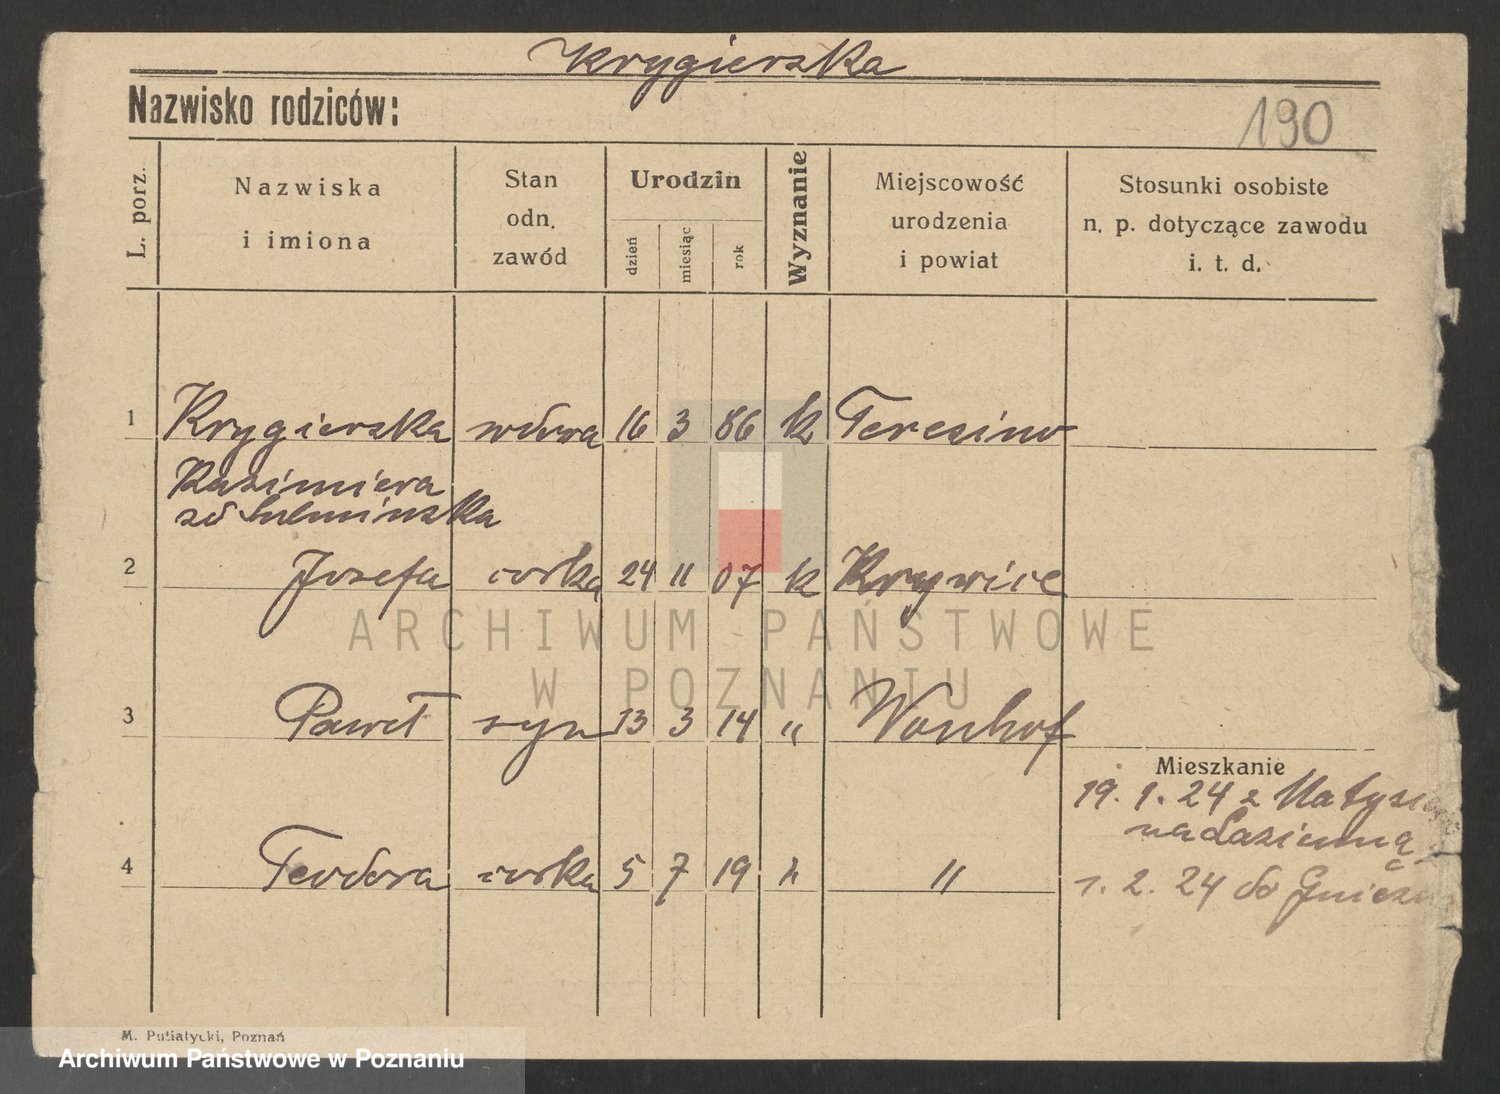 Krygierska
Nazwisko rodziców:
190
L. porz.
Nazwiska
i imiona
Stan
odn.
zawód
Urodzin
dzień
miesiąc
rok
Wyznanie
Miejscowość
urodzenia
i powiat
Stosunki osobiste
n. p. dotyczące zawodu
i. t. d.
1 Krygierska wdowa 16 3 86 k Teresino
Kazimiera
2 Józefa córka 24 11 07 k
3 Paweł syn 13 3 14 "
Mieszkanie
19. 1. 24 z
4 Teodora córka 5 7 19 "
1. 2. 24 do
ARCHIWUM PAŃSTWOWE
W POZNANIU
M. Putiatycki, Poznań
Archiwum Państwowe w Poznaniu